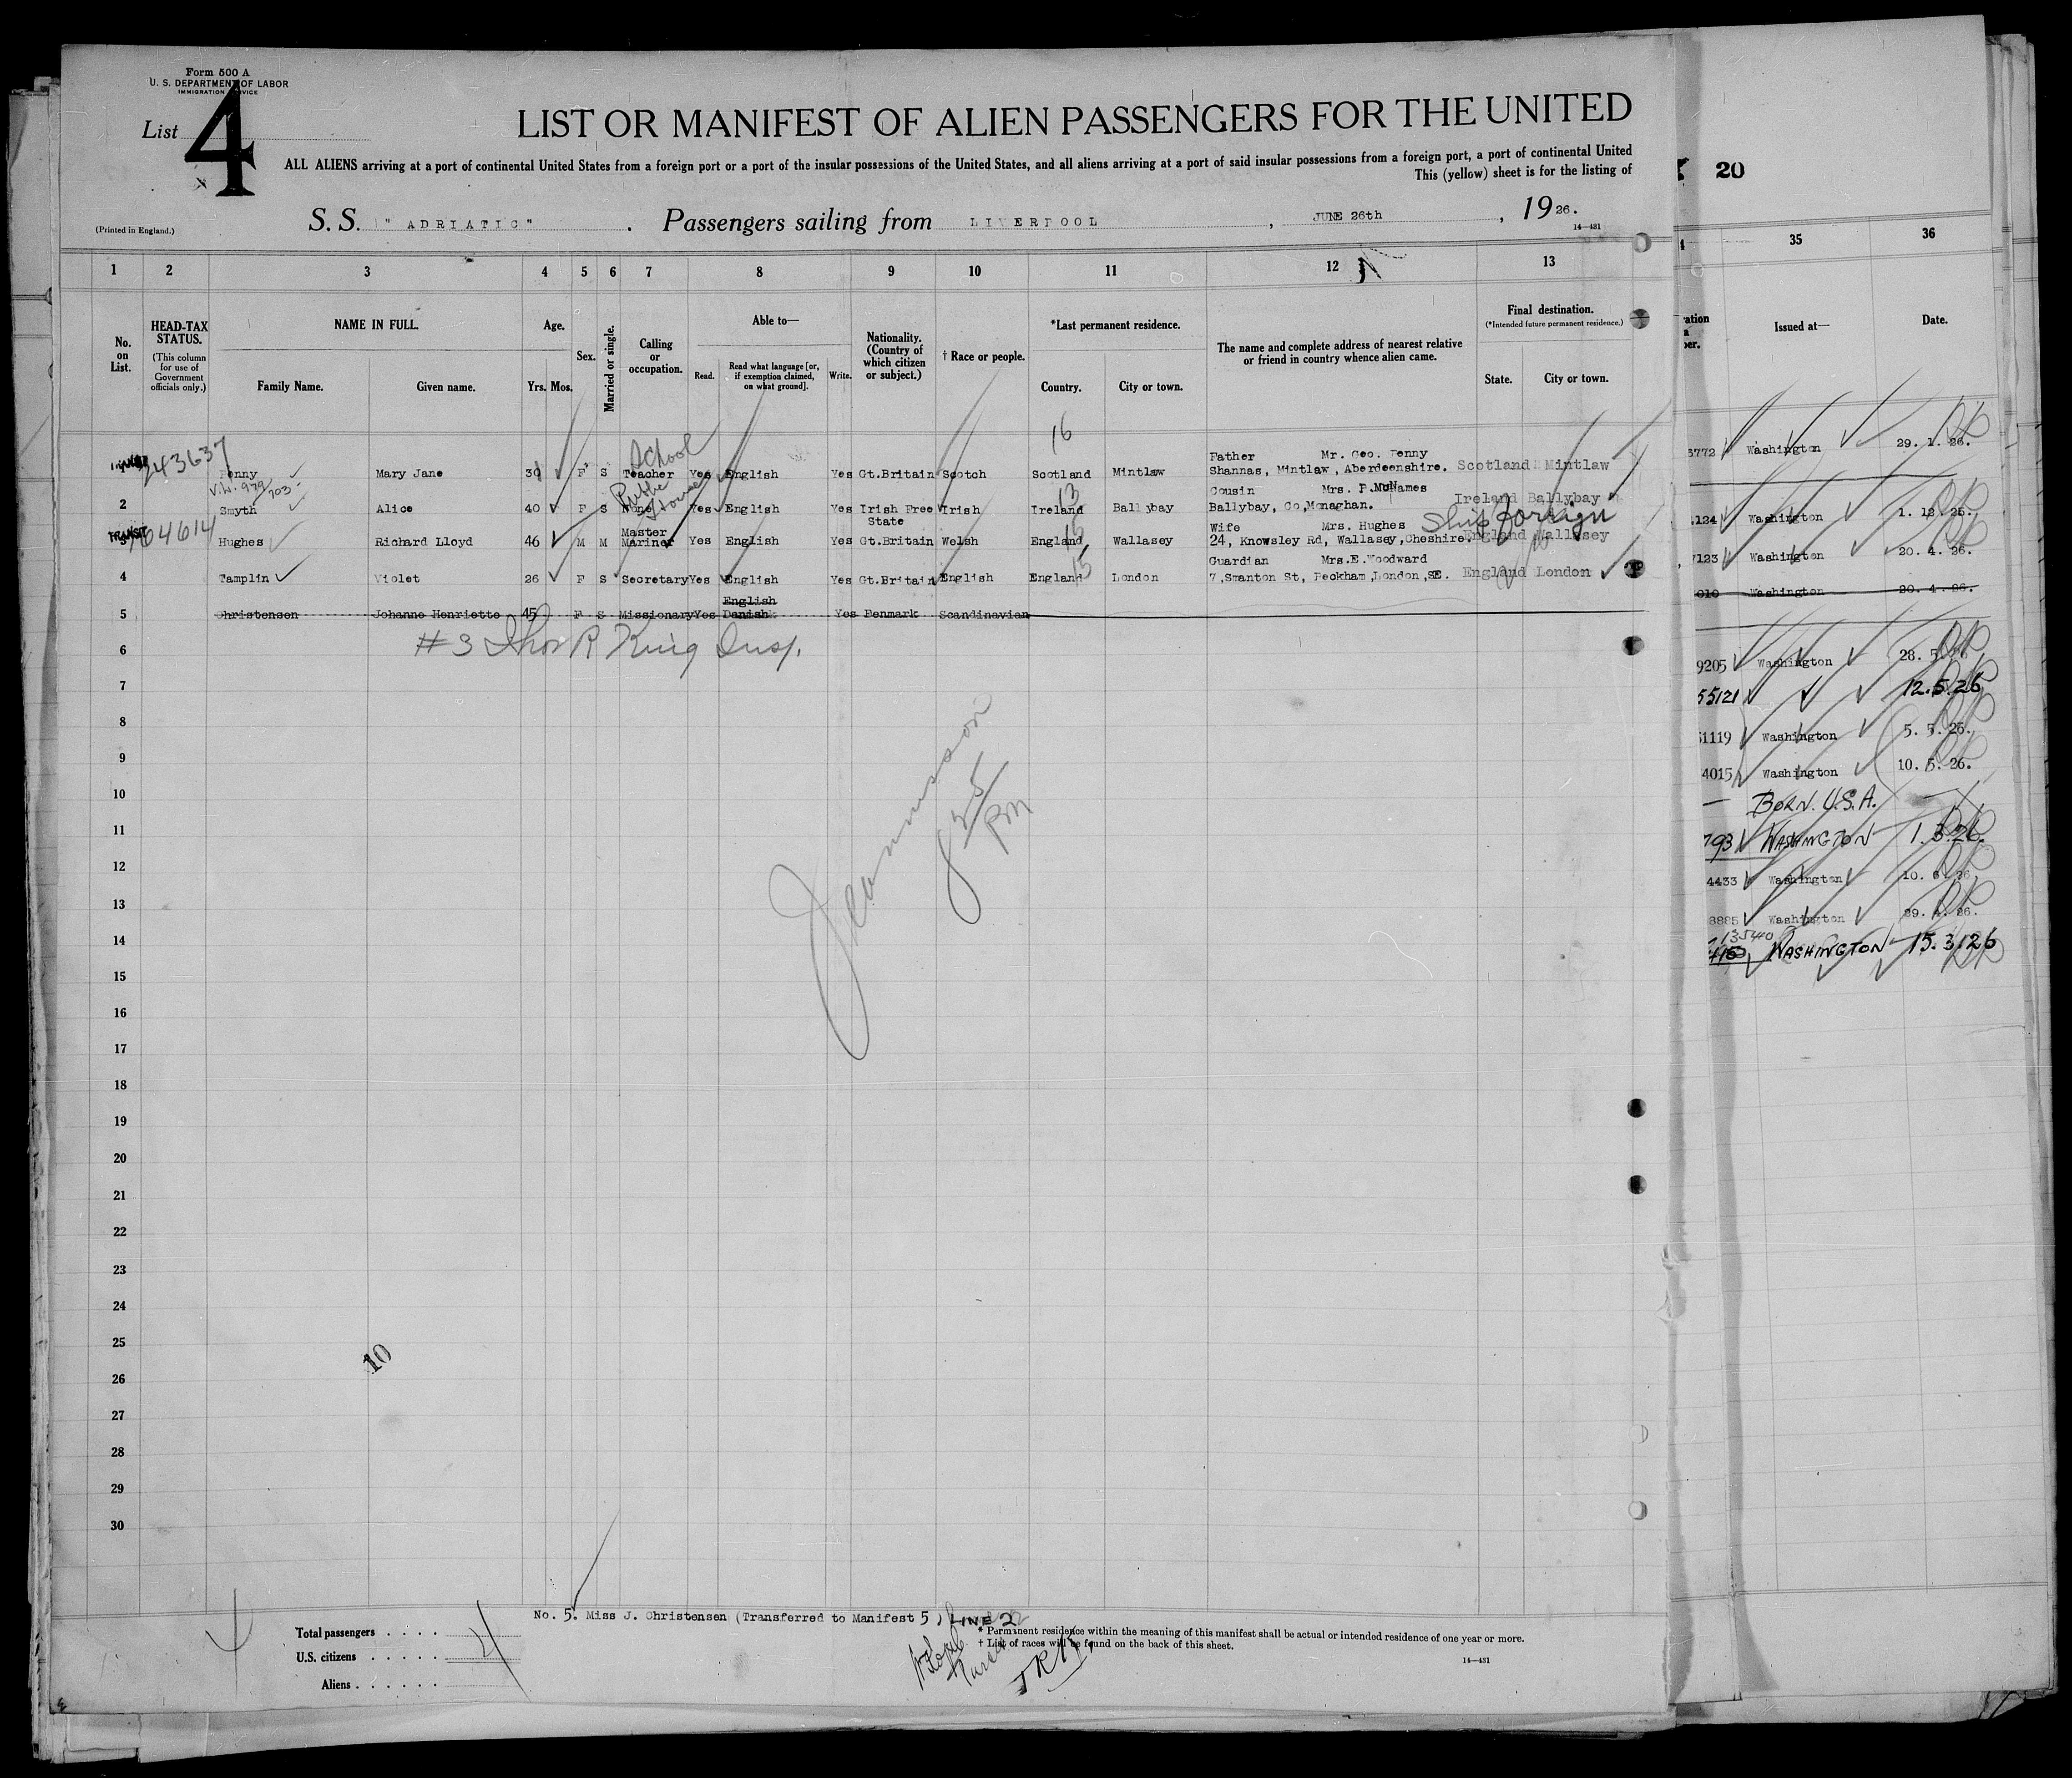 Form 500 A
U. S. DEPARTMENT OF LABOR
IMMIGRATION SERVICE
List 4
LIST OR MANIFEST OF ALIEN PASSENGERS FOR THE UNITED
ALL ALIENS arriving at a port of continental United States from a foreign port or a port of the insular possessions of the United States, and all aliens arriving at a port of said insular possessions from a foreign port, a port of continental United
This (yellow) sheet is for the listing of
20
(Printed in England.)
S. S. "ADRIATIC". Passengers sailing from LIVERPOOL, JUNE 26th, 1926.
14—431
1 2 3 4 5 6 7 8 9 10 11 12 13 35 36
No. on List.
HEAD-TAX STATUS.
(This column for use of Government officials only.)
NAME IN FULL.
Family Name. Given name.
Age.
Yrs. Mos.
Sex.
Married or single.
Calling or occupation.
Able to—
Read. Read what language [or, if exemption claimed, on what ground]. Write.
Nationality. (Country of which citizen or subject.)
† Race or people.
*Last permanent residence.
Country. City or town.
The name and complete address of nearest relative or friend in country whence alien came.
Final destination.
(*Intended future permanent residence.)
State. City or town.
Issued at—
Date.
16
243637
School
Father Mr. Geo. Penny
1 Penny Mary Jane 30 F S Teacher Yes English Yes Gt.Britain Scotch Scotland Mintlaw Shannas, Mintlaw, Aberdeenshire. Scotland Mintlaw
3772 Washington 29. 1. 26.
13
Cousin Mrs. P. McNames
2 Smyth Alice 40 F S None Yes English Yes Irish Free State Irish Ireland Ballybay Ballybay, Co, Monaghan. Ireland Ballybay
124 Washington 1. 12. 25.
TRANSIT
164614
Ship foreign
Wife Mrs. Hughes
3 Hughes Richard Lloyd 46 M M Master Mariner Yes English Yes Gt.Britain Welsh England Wallasey 24, Knowsley Rd, Wallasey, Cheshire. England Wallasey
7123 Washington 20. 4. 26.
15
Guardian Mrs.E.Woodward
4 Tamplin Violet 26 F S Secretary Yes English Yes Gt.Britain English England London 7, Smanton St, Peckham, London, SE. England London
010 Washington 20. 4. 26.
English
5 Christensen Johanne Henriette 45 F S Missionary Yes Danish Yes Denmark Scandinavian
#3 R King Insp.
6
9205 Washington 28. 5. 26
7
55121 12.5.26
8
51119 Washington 5. 5. 26.
9
4015 Washington 10. 5. 26.
10
BORN. U.S.A.
11
793 WASHINGTON 1. 3. 26.
12
4433 Washington 10. 6. 26
13
8885 Washington 29. 4. 26.
14
13540
WASHINGTON 15.3.26
15
16
17
18
19
20
21
22
23
24
25
10
26
27
28
29
30
No. 5. Miss J. Christensen (Transferred to Manifest 5) LINE 2
Total passengers . . . .
U.S. citizens . . . . .
Aliens . . . . . .
4
* Permanent residence within the meaning of this manifest shall be actual or intended residence of one year or more.
† List of races will be found on the back of this sheet.
14—431